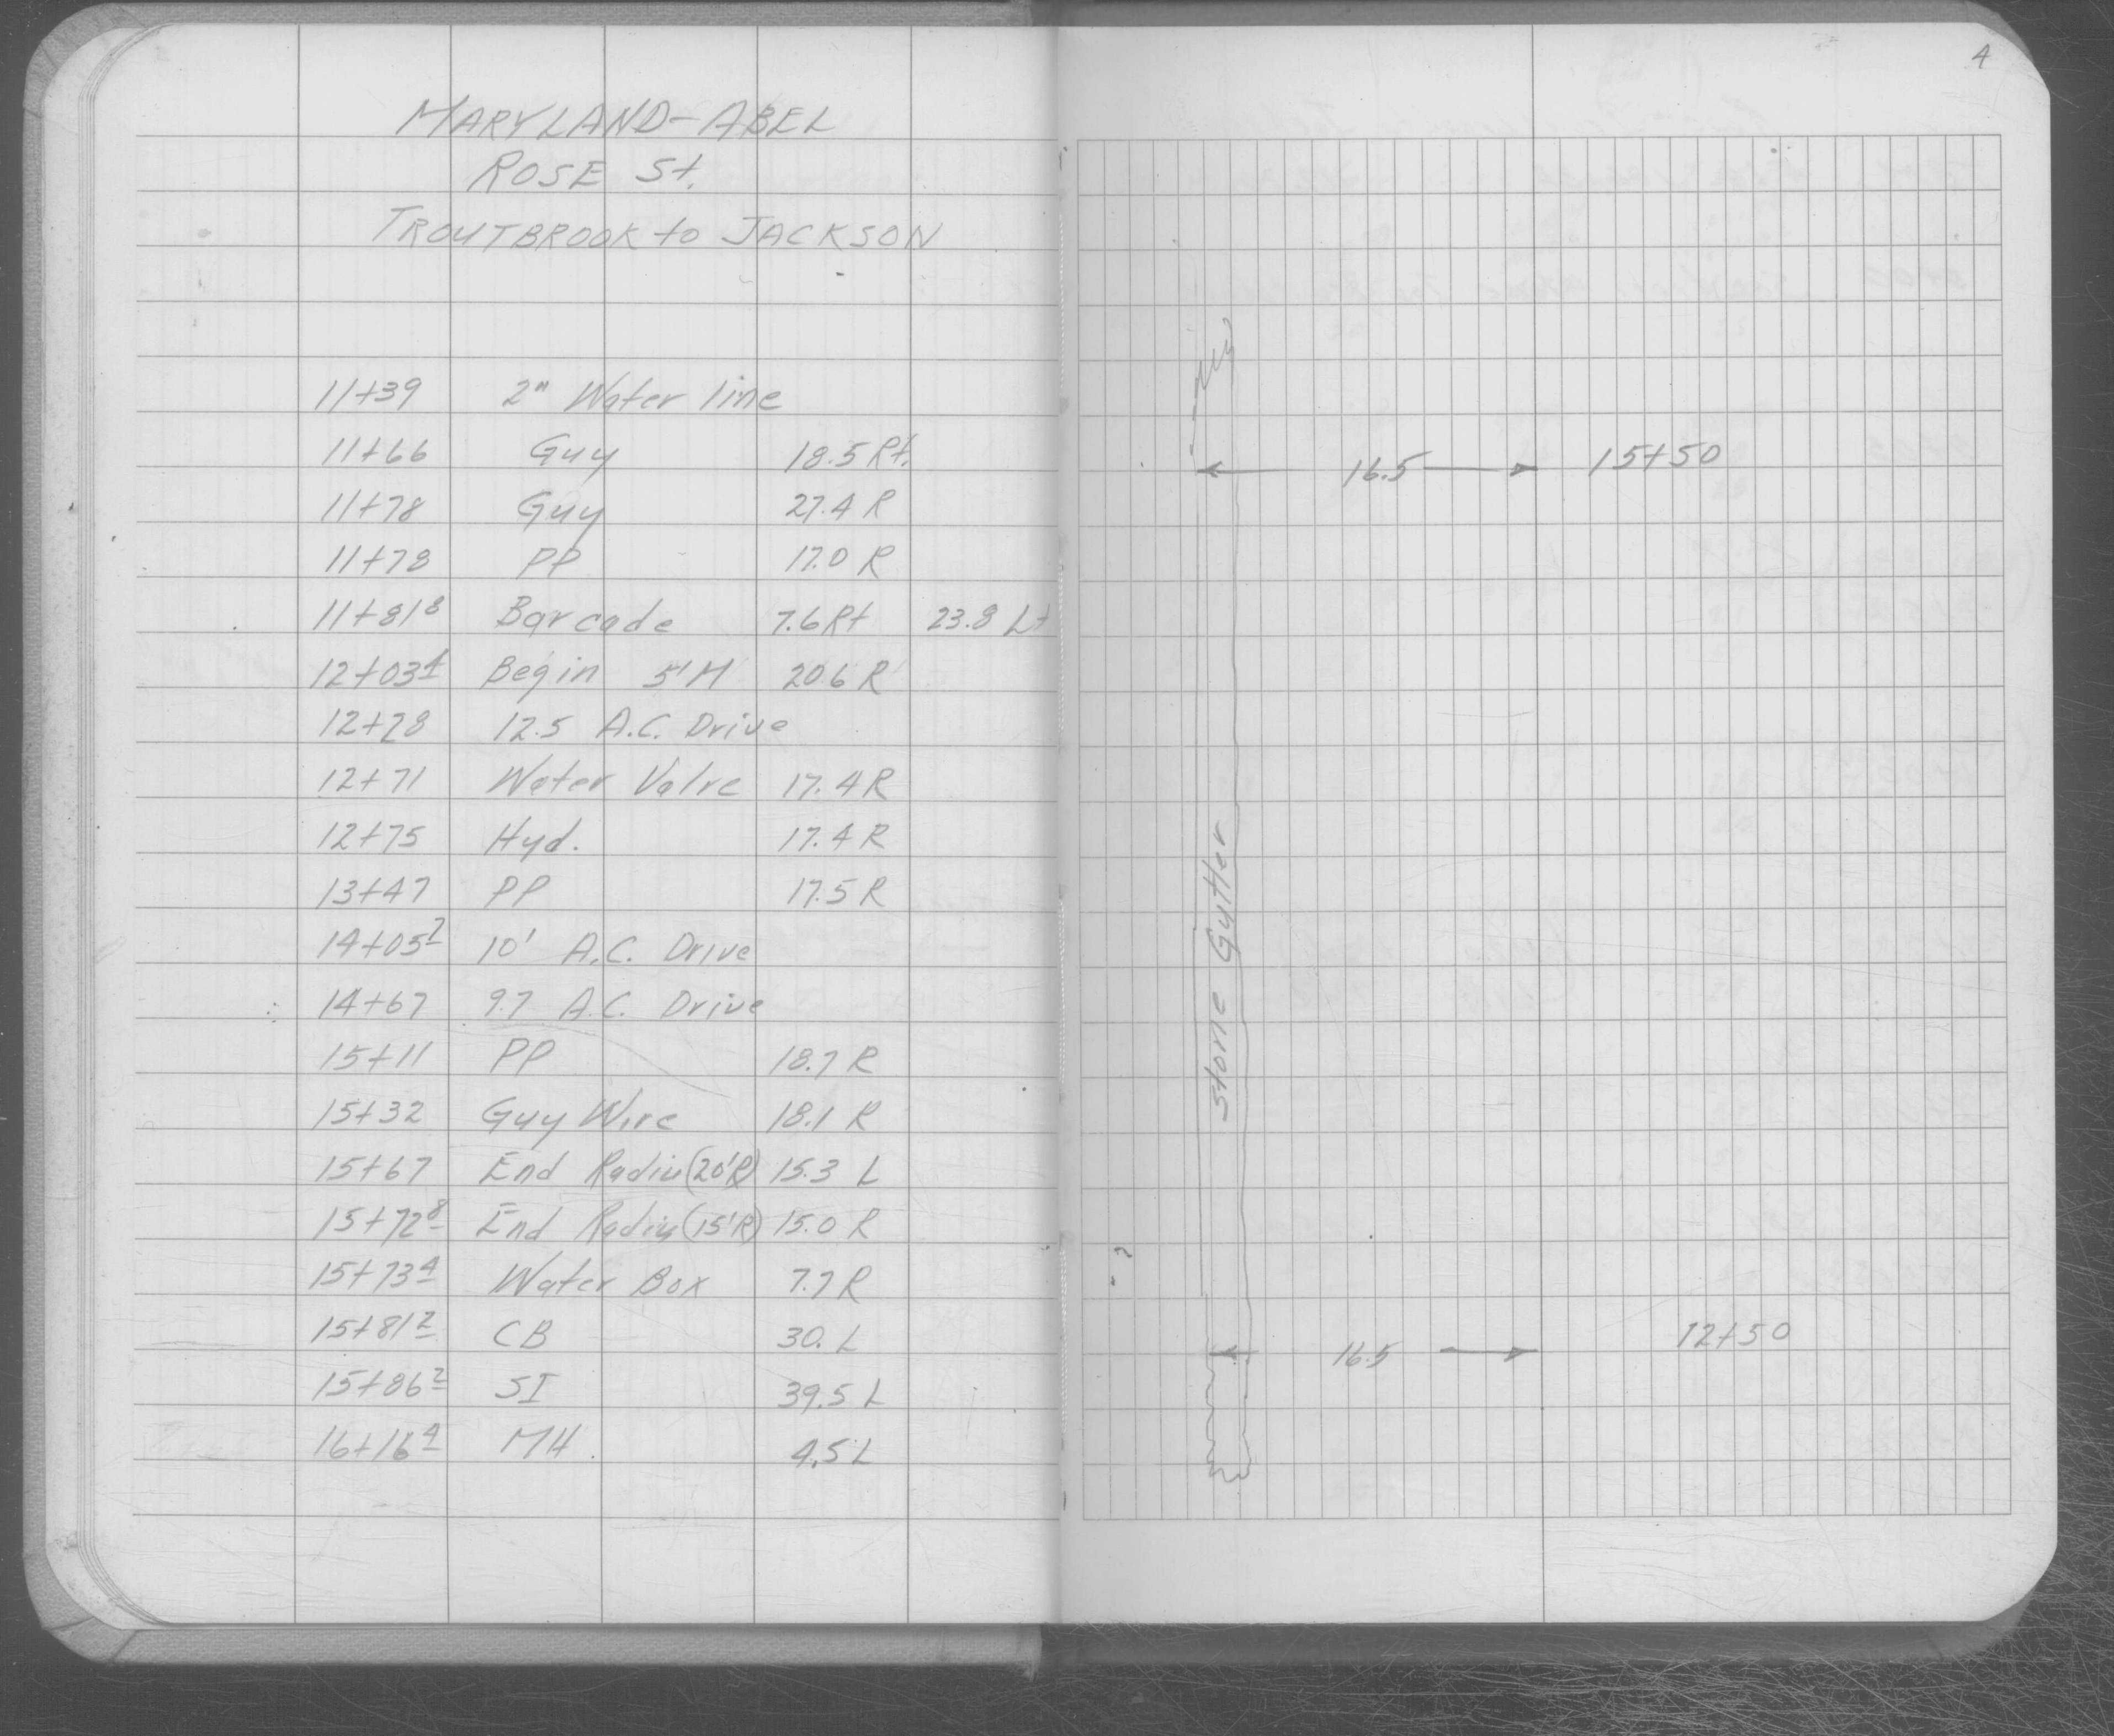 MARYLAND-ABEL
ROSE St.
TROUTBROOK to JACKSON
11+39 2" Water line
11+66 Guy 18.5 Rt.
11+78 Guy 27.4 R
11+78 PP 17.0 R
11+81⁸ Barcade 7.6 Rt 23.8 Lt
12+03⁴ Begin 5'H 20.6 R
12+28 12.5 A.C. Drive
12+71 Water Valve 17.4 R
12+75 Hyd. 17.4 R
13+47 PP 17.5 R
14+05² 10' A.C. Drive
14+67 9.7 A.C. Drive
15+11 PP 18.7 R
15+32 Guy Wire 18.1 R
15+67 End Radiu (20'R) 15.3 L
15+72⁸ End Radius (15'R) 15.0 R
15+73⁴ Water Box 7.7 R
15+81² CB 30. L
15+86² SI 39.5 L
16+16⁴ MH. 4.5 L
4
16.5 15+50
Stone Gutter
16.5 12+50